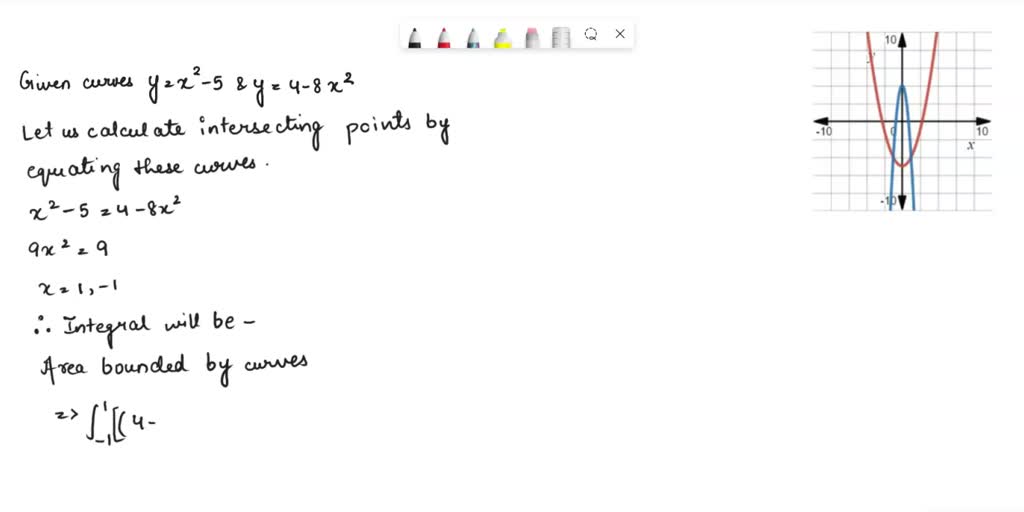 Given curves y = x² - 5 & y = 4 - 8x²
Let us calculate intersecting points by
equating these curves.
x² - 5 = 4 - 8x²
9x² = 9
x = 1, -1
∴ Integral will be -
Area bounded by curves
=> ∫₋₁¹[(4 -
10
y
-10
0
10
x
-10